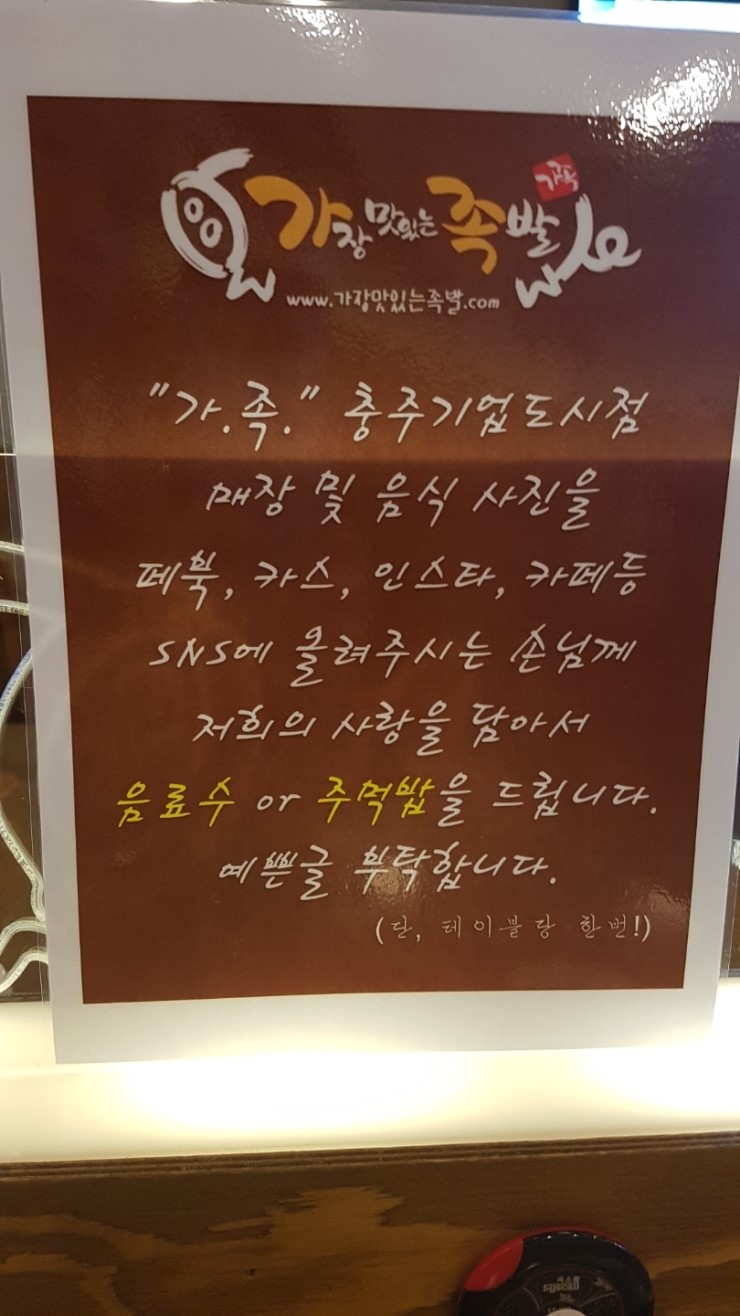 가장 맛있는 족발
가족
www.가장맛있는족발.com
"가.족." 충주기업도시점
매장 및 음식 사진을
페북, 카스, 인스타, 카페등
SNS에 올려주시는 손님께
저희의 사랑을 담아서
음료수 or 주먹밥을 드립니다.
예쁜글 부탁합니다.
(단, 테이블당 한번!)